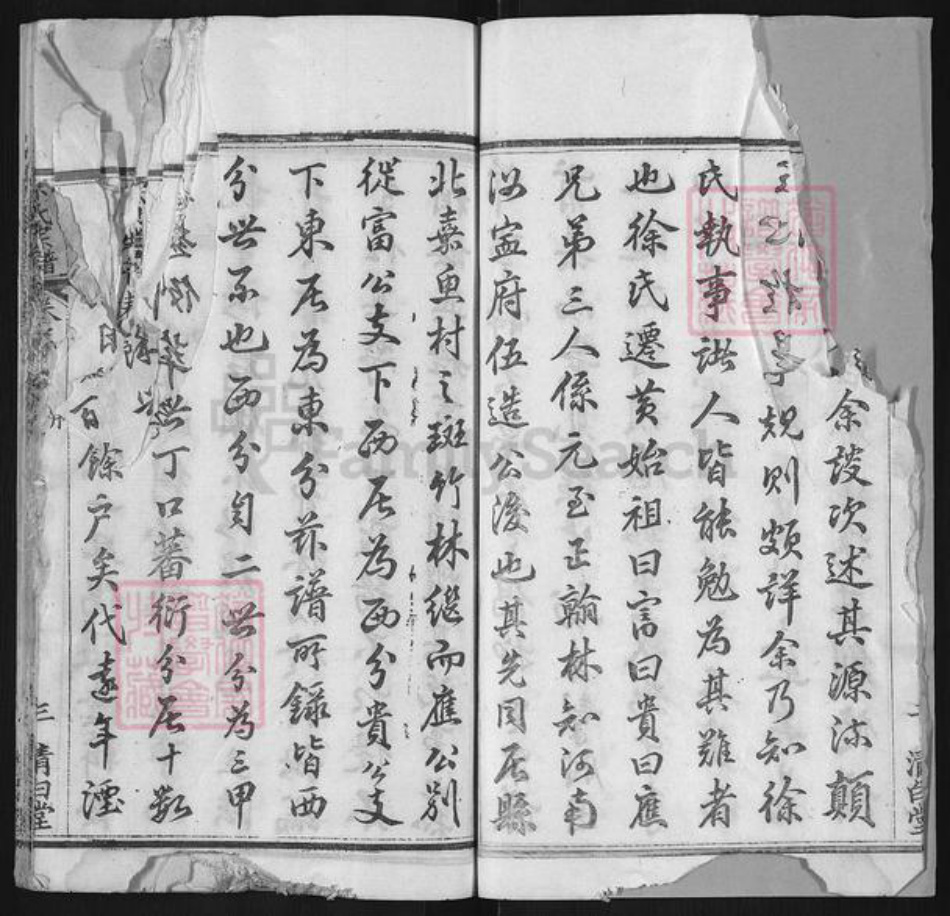 余披次述其源流顛
規則頗詳余乃知徐
氏執事諸人皆能勉為其難者
也徐氏遷黃始祖曰富曰貴曰應
兄弟三人係元至正翰林知河南
汝寧府伍造公後也其先同居縣
北嘉魚村之斑竹林繼而應公別
從富公支下西居為西分貴公支
下東居為東分茲譜所錄皆西
分世系也西分自二世分為三甲
世丁口蕃衍分居十數
百餘戶矣代遠年湮
三 清白堂
清白堂
FamilySearch